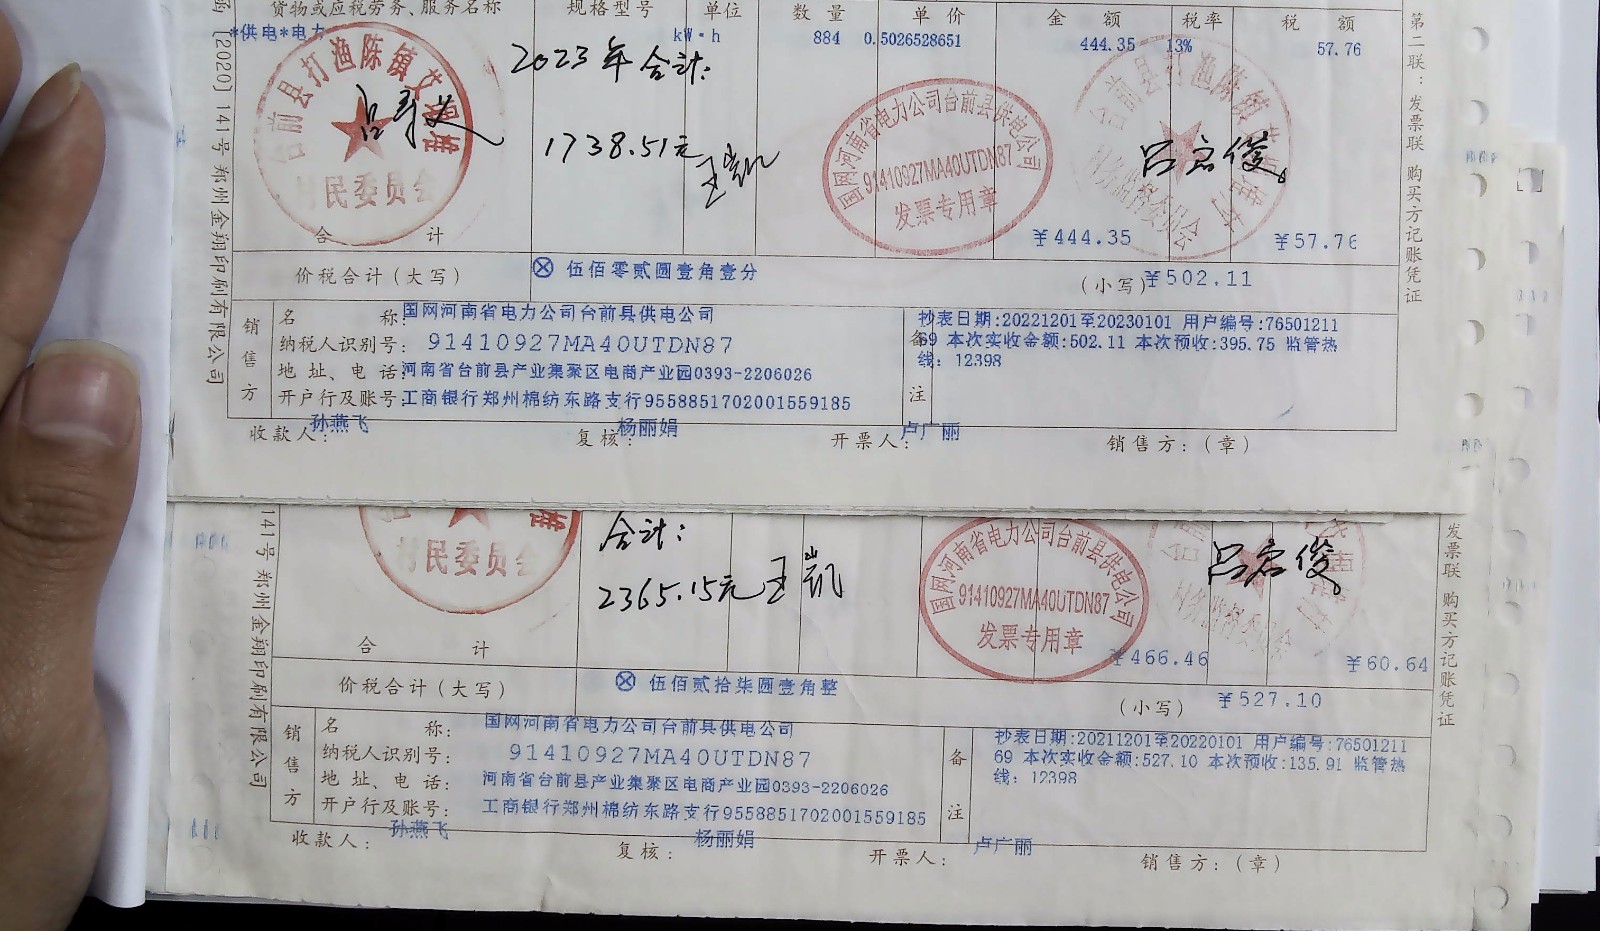 货物或应税劳务、服务名称 规格型号 单位 数量 单价 金额 税率 税额
*供电*电力 kW·h 884 0.5026528651 444.35 13% 57.76
2023年合计:
1738.51元
王凯
吕启俊
台前县打渔陈镇
村民委员会
国网河南省电力公司台前县供电公司
91410927MA40UTDN87
发票专用章
合计 ¥444.35 ¥57.76
价税合计(大写) ⊗ 伍佰零贰圆壹角壹分 (小写) ¥502.11
销售方
名称: 国网河南省电力公司台前县供电公司
纳税人识别号: 91410927MA40UTDN87
地址、电话: 河南省台前县产业集聚区电商产业园0393-2206026
开户行及账号: 工商银行郑州棉纺东路支行9558851702001559185
备注
抄表日期:20221201至20230101 用户编号:76501211
69 本次实收金额:502.11 本次预收:395.75 监管热
线: 12398
收款人: 孙燕飞 复核: 杨丽娟 开票人: 卢广丽 销售方:(章)
函[2020]141号郑州金翔印刷有限公司
第二联:发票联 购买方记账凭证
合计:
2365.15元 王凯
吕启俊
村民委员会
国网河南省电力公司台前县供电公司
91410927MA40UTDN87
发票专用章
合计 ¥466.46 ¥60.64
价税合计(大写) ⊗ 伍佰贰拾柒圆壹角整 (小写) ¥527.10
销售方
名称: 国网河南省电力公司台前县供电公司
纳税人识别号: 91410927MA40UTDN87
地址、电话: 河南省台前县产业集聚区电商产业园0393-2206026
开户行及账号: 工商银行郑州棉纺东路支行9558851702001559185
备注
抄表日期:20211201至20220101 用户编号:76501211
69 本次实收金额:527.10 本次预收:135.91 监管热
线: 12398
收款人: 孙燕飞 复核: 杨丽娟 开票人: 卢广丽 销售方:(章)
141号郑州金翔印刷有限公司
发票联 购买方记账凭证